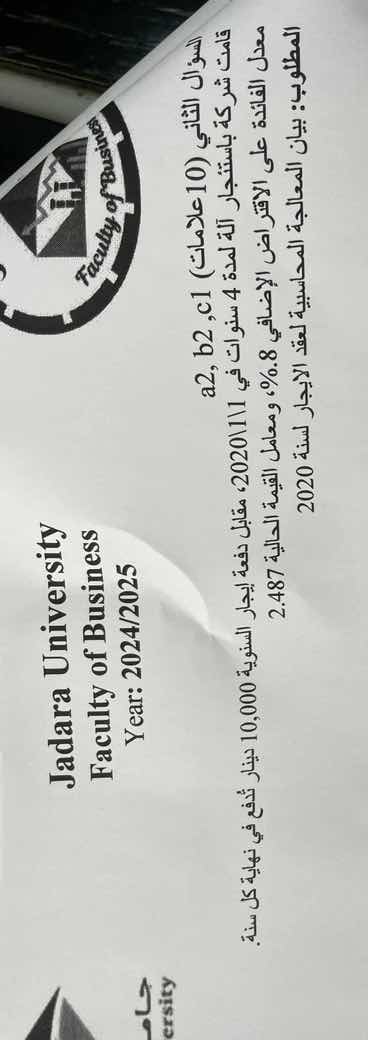 جام
ersity
Jadara University
Faculty of Business
Year: 2024/2025
Faculty of Business
السؤال الثاني (10علامات) a2, b2 ,c1
قامت شركة باستئجار آلة لمدة 4 سنوات في 1\1\2020، مقابل دفعة إيجار السنوية 10,000 دينار تُدفع في نهاية كل سنة.
معدل الفائدة على الاقتراض الإضافي 8.%، ومعامل القيمة الحالية 2.487
المطلوب: بيان المعالجة المحاسبية لعقد الايجار لسنة 2020